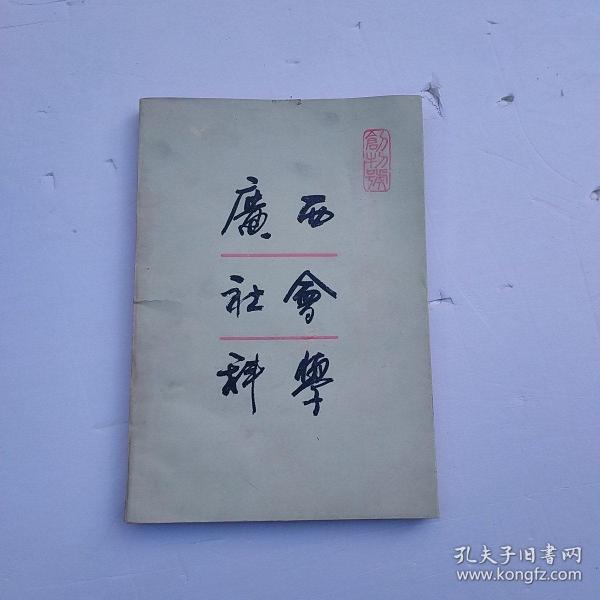 創刊號
廣西
社會
科學
孔夫子旧書网
www.kongfz.com